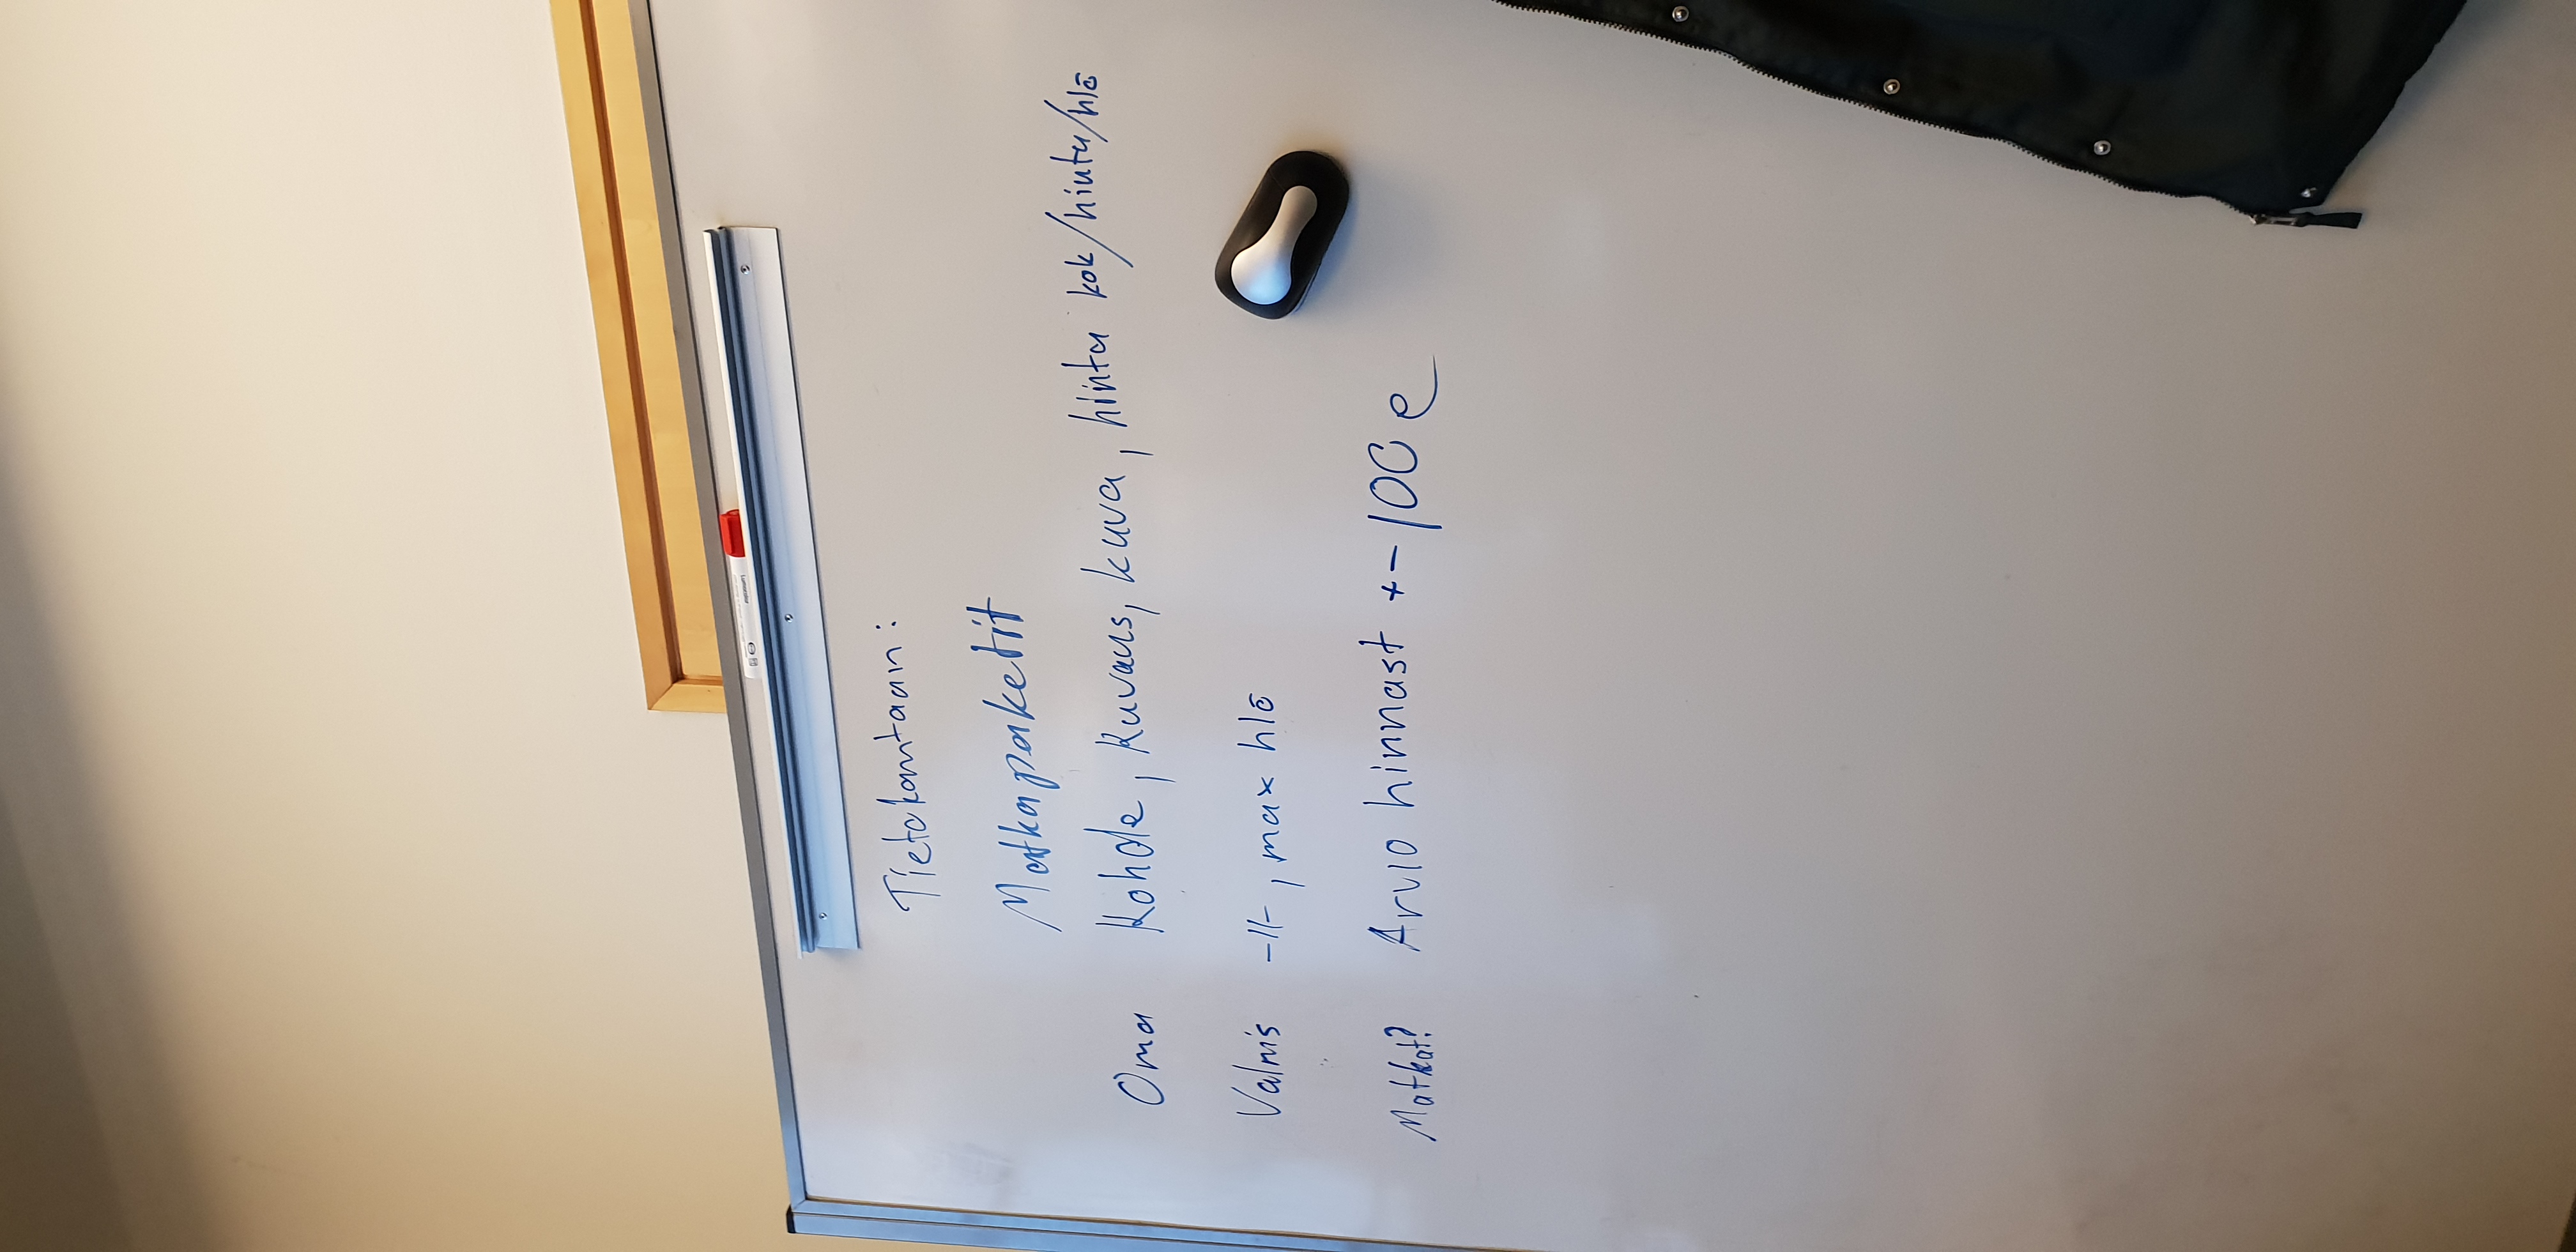 Tietokantaan:
Matkapaketit
Oma Kohde, Kuvaus, kuva, hinta kok/hinta/hlö
Valmis -||-, max hlö
Matkat? Arvio hinnast +-100e